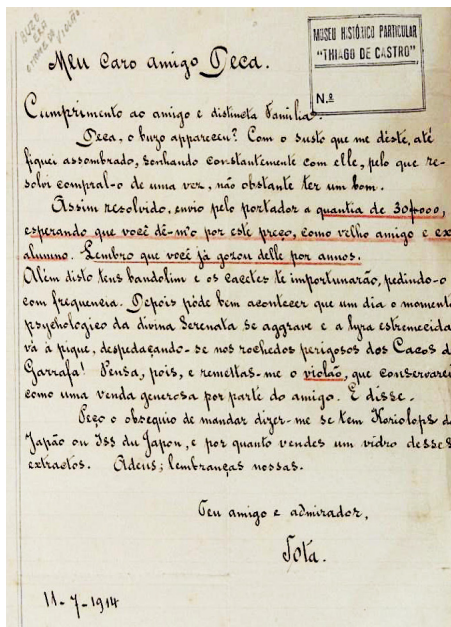 BUZO
ERA
O NOME DO VIOLÃO
MUSEU HISTÓRICO PARTICULAR
"THIAGO DE CASTRO"
N.º
Meu caro amigo Deca.
Cumprimento ao amigo e distincta Familia.
Deca, o buzo appareceu? Com o susto que me déste, até
fiquei assombrado, sonhando constantemente com elle, pelo que re-
solvi compral-o de uma vez, não obstante ter um bom.
Assim resolvido, envio pelo portador a quantia de 30$000,
esperando que você dê-m'o por este preço, como velho amigo e ex
alumno. Lembro que você já gozou delle por annos.
Além disto tens bandolim e os cacetes te importunarão, pedindo-o
com frequencia. Depois póde bem acontecer que um dia o momento
psychologico da divina Serenata se aggrave e a lyra estremecida
vá à pique, despedaçando-se nos rochedos perigosos dos Cacos d
Garrafa! Pensa, pois, e remettas-me o violão, que conservarei
como uma venda generosa por parte do amigo. E disse.
Peço o obsequio de mandar dizer-me se tem Koriolops d
Japão ou Iss du Japon, e por quanto vendes um vidro desses
extractos. Adeus; lembranças nossas.
Teu amigo e admirador,
Jota.
11-7-1914